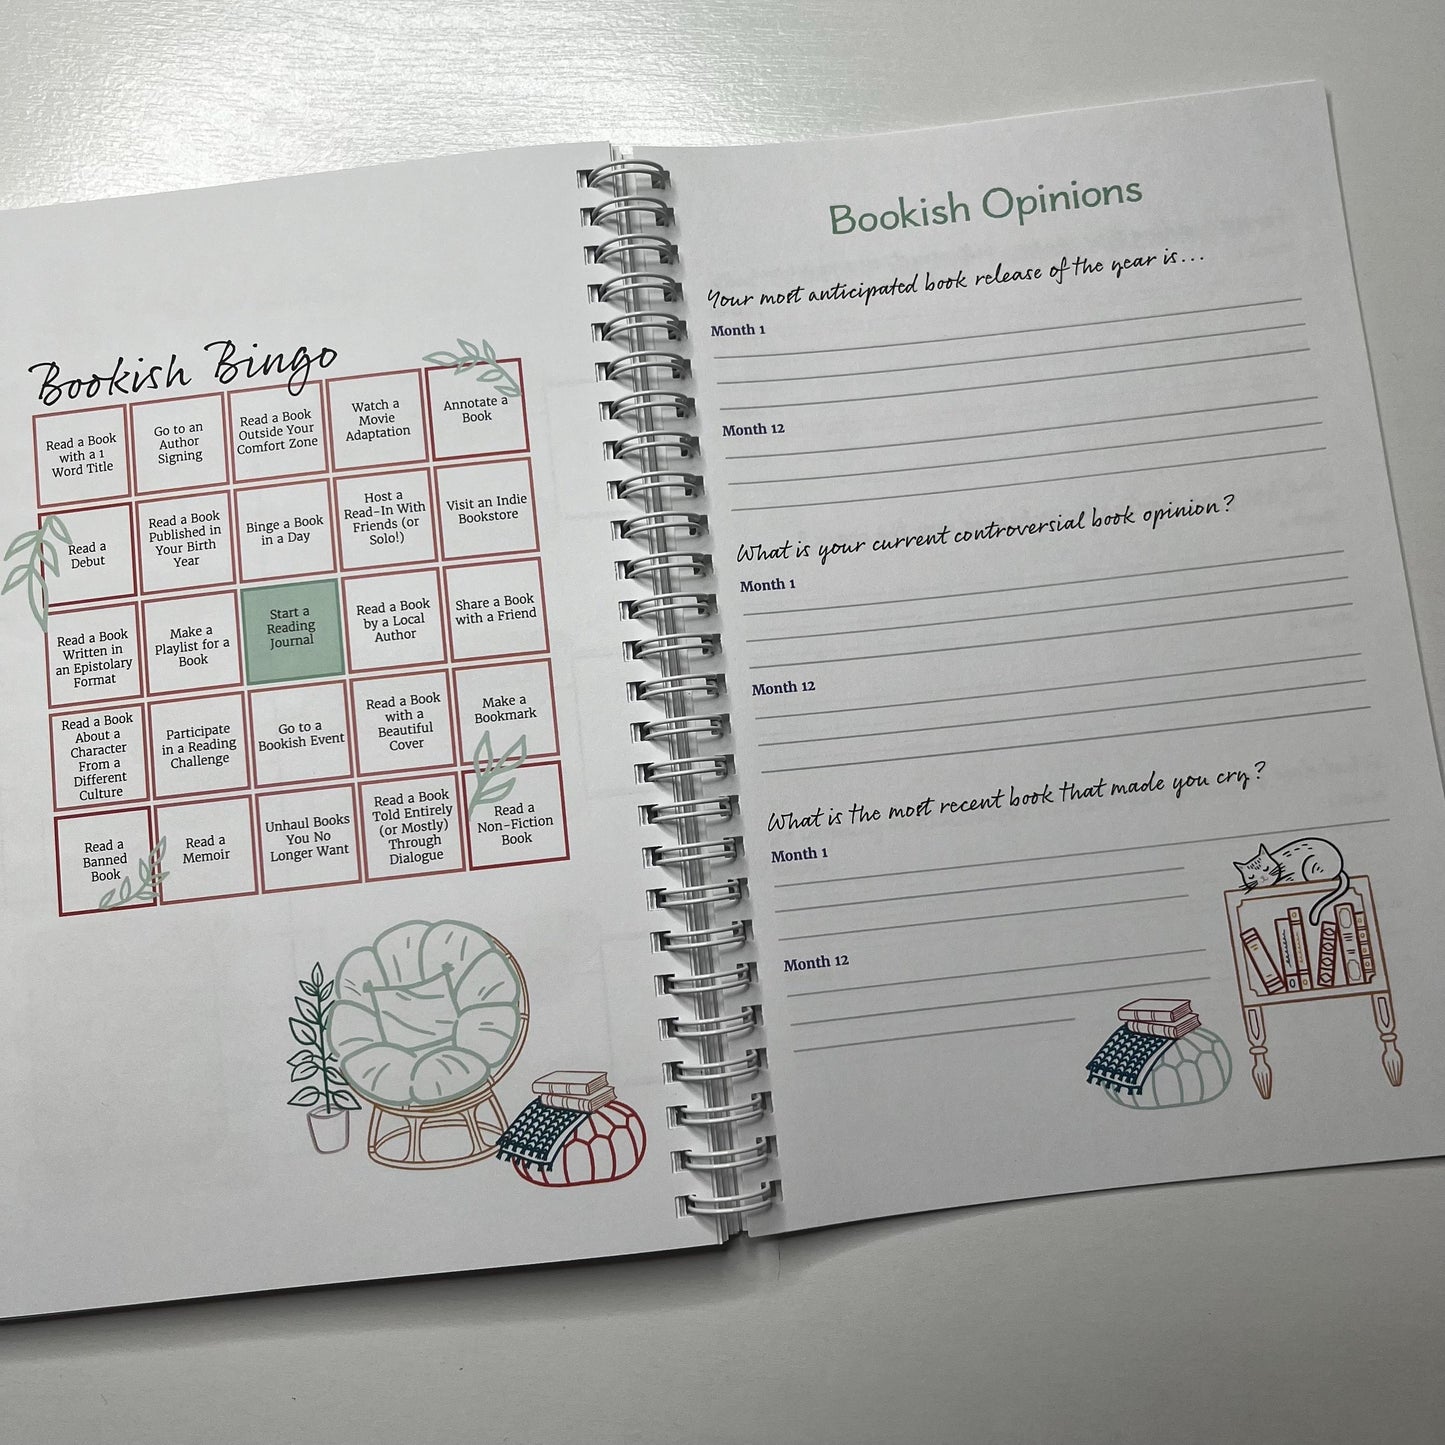 Bookish Bingo
Read a Book
with a 1
Word Title
Go to an
Author
Signing
Read a Book
Outside Your
Comfort Zone
Watch a
Movie
Adaptation
Annotate a
Book
Read a
Debut
Read a Book
Published in
Your Birth
Year
Binge a Book
in a Day
Host a
Read-In With
Friends (or
Solo!)
Visit an Indie
Bookstore
Read a Book
Written in
an Epistolary
Format
Make a
Playlist for a
Book
Start a
Reading
Journal
Read a Book
by a Local
Author
Share a Book
with a Friend
Read a Book
About a
Character
From a
Different
Culture
Participate
in a Reading
Challenge
Go to a
Bookish Event
Read a Book
with a
Beautiful
Cover
Make a
Bookmark
Read a
Banned
Book
Read a
Memoir
Unhaul Books
You No
Longer Want
Read a Book
Told Entirely
(or Mostly)
Through
Dialogue
Read a
Non-Fiction
Book
Bookish Opinions
Your most anticipated book release of the year is...
Month 1
Month 12
What is your current controversial book opinion?
Month 1
Month 12
What is the most recent book that made you cry?
Month 1
Month 12